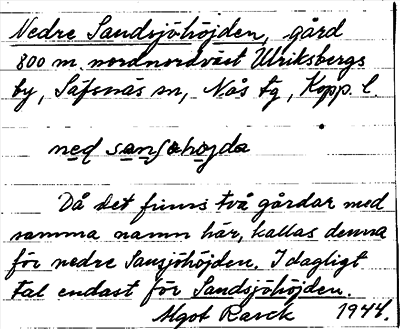 Nedre Sandsjöhöjden, gård
800 m. nordnordväst Ulriksbergs
by, Säfsnäs sn, Nås tg, Kopp. l.
ned sansøhøjda
Då det finns två gårdar med
samma namn här, kallas denna
för nedre Sansjöhöjden. I dagligt
tal endast för Sandsjöhöjden.
Algot Rarck 1944.